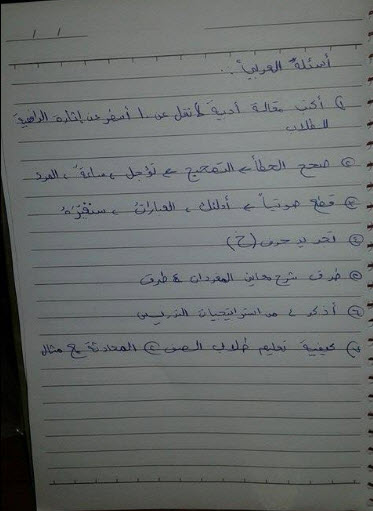 أسئلة العربي ..
١) أكتب مقالة أدبية لا تقل عن ١٠ أسطر عن إثارة الدافعية
للطلاب
٢) صحح الخطأ مع التصحيح
٣) قطع صوتياً أولئك ، العبارات ، سنقرئه
٤) تجريد حرف (ح)
٥) طرق شرح معاني المفردات ٤ طرق
٦) أذكر من استراتيجيات التدريس
٧) كيفية تعليم طلاب الصف ٢ المحادثة مع مثال